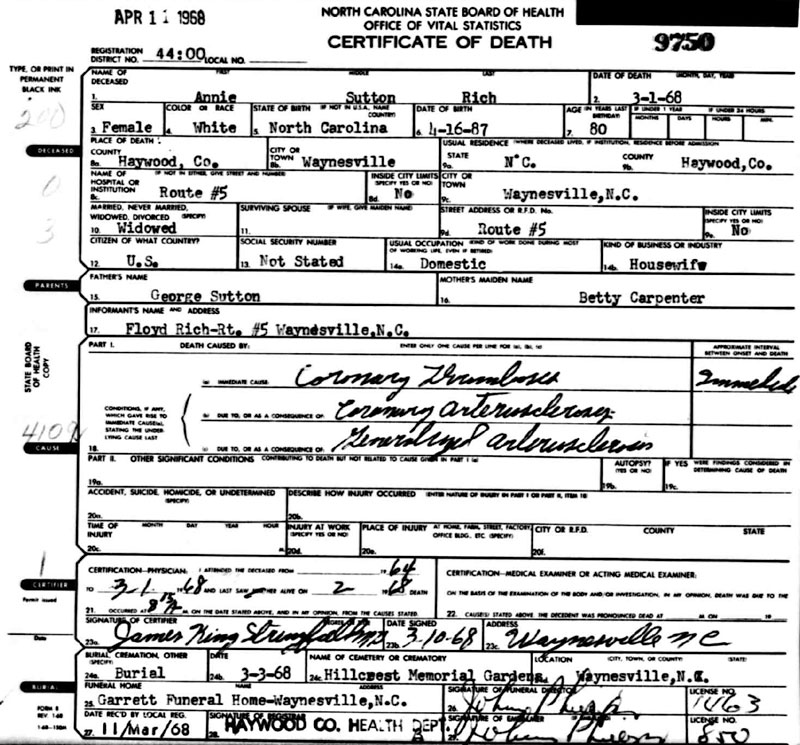 APR 11 1968
NORTH CAROLINA STATE BOARD OF HEALTH
OFFICE OF VITAL STATISTICS
CERTIFICATE OF DEATH
9750
REGISTRATION DISTRICT NO. 44:00 LOCAL NO.
TYPE, OR PRINT IN PERMANENT BLACK INK
NAME OF DECEASED FIRST MIDDLE LAST DATE OF DEATH (MONTH, DAY, YEAR)
1. Annie Sutton Rich 2. 3-1-68
SEX COLOR OR RACE STATE OF BIRTH (IF NOT IN U.S.A., NAME COUNTRY) DATE OF BIRTH AGE (IN YEARS LAST BIRTHDAY) IF UNDER 1 YEAR IF UNDER 24 HOURS
MONTHS DAYS HOURS MIN.
3. Female 4. White 5. North Carolina 6. 4-16-87 7. 80
DECEASED
PLACE OF DEATH COUNTY CITY OR TOWN USUAL RESIDENCE (WHERE DECEASED LIVED, IF INSTITUTION, RESIDENCE BEFORE ADMISSION) STATE COUNTY
8a. Haywood, Co. 8b. Waynesville 9a. N.C. 9b. Haywood,Co.
NAME OF HOSPITAL OR INSTITUTION (IF NOT IN EITHER, GIVE STREET AND NUMBER) INSIDE CITY LIMITS (SPECIFY YES OR NO) CITY OR TOWN
8c. Route #5 8d. No 9c. Waynesville,N.C.
MARRIED, NEVER MARRIED, WIDOWED, DIVORCED (SPECIFY) SURVIVING SPOUSE (IF WIFE, GIVE MAIDEN NAME) STREET ADDRESS OR R.F.D. No. INSIDE CITY LIMITS (SPECIFY YES OR NO)
10. Widowed 11. 9d. Route #5 9e. No
CITIZEN OF WHAT COUNTRY? SOCIAL SECURITY NUMBER USUAL OCCUPATION (KIND OF WORK DONE DURING MOST OF WORKING LIFE, EVEN IF RETIRED) KIND OF BUSINESS OR INDUSTRY
12. U.S. 13. Not Stated 14a. Domestic 14b. Housewife
PARENTS
FATHER'S NAME MOTHER'S MAIDEN NAME
15. George Sutton 16. Betty Carpenter
INFORMANT'S NAME AND ADDRESS
17. Floyd Rich-Rt. #5 Waynesville,N.C.
STATE BOARD OF HEALTH COPY
PART I. DEATH CAUSED BY: ENTER ONLY ONE CAUSE PER LINE FOR (a), (b), (c) APPROXIMATE INTERVAL BETWEEN ONSET AND DEATH
(a) IMMEDIATE CAUSE: Coronary Thrombosis
CONDITIONS, IF ANY, WHICH GAVE RISE TO IMMEDIATE CAUSE(a) STATING THE UNDERLYING CAUSE LAST
(b) DUE TO, OR AS A CONSEQUENCE OF: Coronary arteriosclerosis
18. (c) DUE TO, OR AS A CONSEQUENCE OF: Generalized arteriosclerosis
CAUSE
PART II. OTHER SIGNIFICANT CONDITIONS CONTRIBUTING TO DEATH BUT NOT RELATED TO CAUSE GIVEN IN PART I (a) AUTOPSY? (YES OR NO) IF YES WERE FINDINGS CONSIDERED IN DETERMINING CAUSE OF DEATH
19a. 19b. 19c.
ACCIDENT, SUICIDE, HOMICIDE, OR UNDETERMINED (SPECIFY) DESCRIBE HOW INJURY OCCURRED (ENTER NATURE OF INJURY IN PART I OR PART II, ITEM 18)
20a. 20b.
TIME OF INJURY MONTH DAY YEAR HOUR INJURY AT WORK (SPECIFY YES OR NO) PLACE OF INJURY AT HOME, FARM, STREET, FACTORY, OFFICE BLDG., ETC. (SPECIFY) CITY OR R.F.D. COUNTY STATE
20c. M. 20d. 20e. 20f.
CERTIFIER
Permit issued
Date
CERTIFICATION-PHYSICIAN: I ATTENDED THE DECEASED FROM 19 64
TO 3-1 1968 AND LAST SAW ALIVE ON 2 1968 DEATH
21. OCCURRED AT M. ON THE DATE STATED ABOVE, AND IN MY OPINION, FROM THE CAUSES STATED.
CERTIFICATION-MEDICAL EXAMINER OR ACTING MEDICAL EXAMINER:
ON THE BASIS OF THE EXAMINATION OF THE BODY AND/OR INVESTIGATION, IN MY OPINION, DEATH WAS DUE TO THE
22. CAUSE(S) STATED ABOVE. THE DECEDENT WAS PRONOUNCED DEAD AT M. ON 19
SIGNATURE OF CERTIFIER DATE SIGNED ADDRESS
23a. James King M.D. 23b. 3-10-68 23c. Waynesville NC
BURIAL
BURIAL, CREMATION, OTHER (SPECIFY) DATE NAME OF CEMETERY OR CREMATORY LOCATION (CITY, TOWN, OR COUNTY) (STATE)
24a. Burial 24b. 3-3-68 24c. Hillcrest Memorial Gardens, Waynesville,N.C.
FUNERAL HOME NAME ADDRESS SIGNATURE OF FUNERAL DIRECTOR LICENSE NO.
25. Garrett Funeral Home-Waynesville,N.C. 26. 1463
FORM 8
REV. 1-68
DATE REC'D BY LOCAL REG. SIGNATURE OF REGISTRAR SIGNATURE OF EMBALMER LICENSE NO.
27. 11/Mar/68 28. HAYWOOD CO. HEALTH DEPT. 29. 850